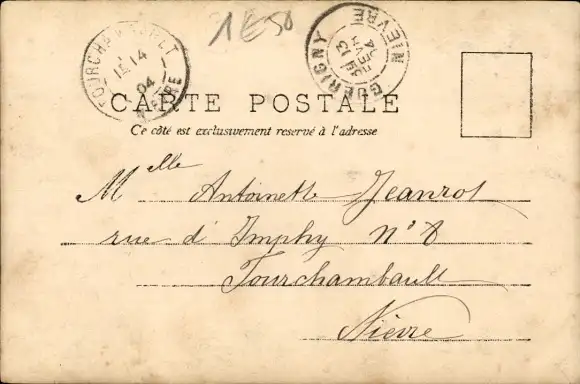 1E50
FOURCHAMBAULT
14
04
NIEVRE
GUERIGNY
13
FEVR
04
NIEVRE
CARTE POSTALE
Ce côté est exclusivement reservé à l'adresse
Mlle Antoinette Jeanrot
rue d'Imphy N° 8
Fourchambault
Nièvre